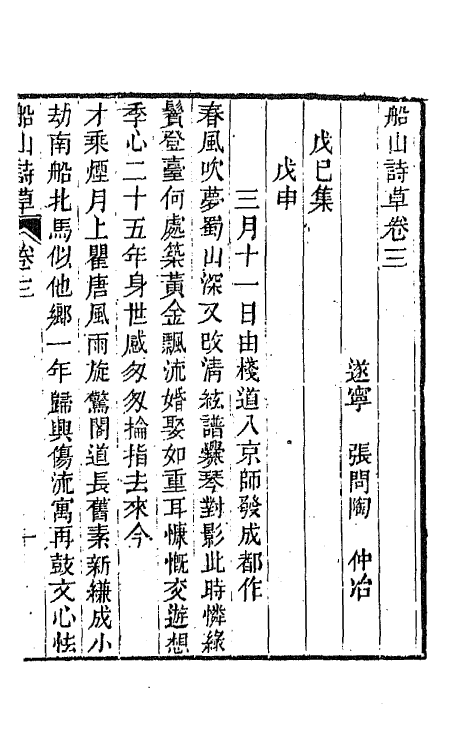 船山詩草卷三
遂寧 張問陶 仲冶
戊巳集
戊申
三月十一日由棧道入京師發成都作
春風吹夢蜀山深又改清絃譜爨琴對影此時憐綠
鬢登臺何處築黃金飄流婚娶如重耳慷慨交遊想
季心二十五年身世感匆匆掄指去來今
才乘煙月上瞿唐風雨旋驚閣道長舊素新縑成小
劫南船北馬似他鄉一年歸與傷流寓再鼓文心怯
船山詩草 卷三 一